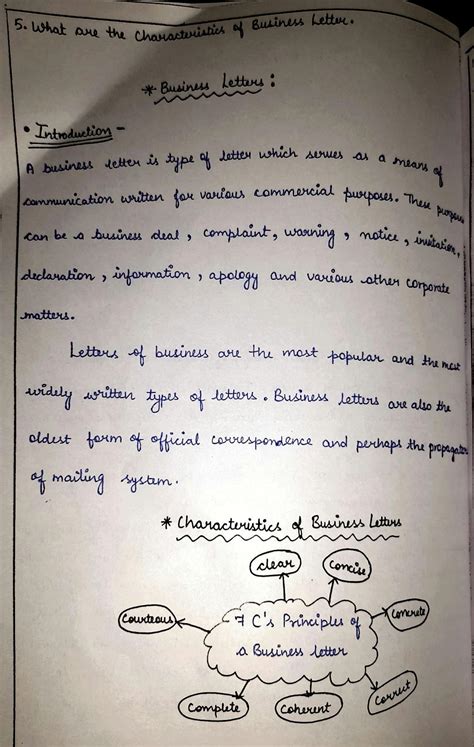 5. What are the Characteristics of Business Letter.
* Business Letters :
• Introduction -
A business letter is type of letter which serves as a means of
communication written for various commercial purposes. These purposes
can be a business deal, complaint, warning, notice, invitation,
declaration, information, apology and various other corporate
matters.
Letters of business are the most popular and the most
widely written types of letters. Business letters are also the
oldest form of official correspondence and perhaps the propagator
of mailing system.
* Characteristics of Business Letters
clear
concise
Courteous
7 C's Principles of
a Business letter
Concrete
Complete
Coherent
Correct